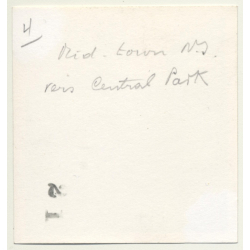 4
Mid. town N.Y.
vers Central Park
12